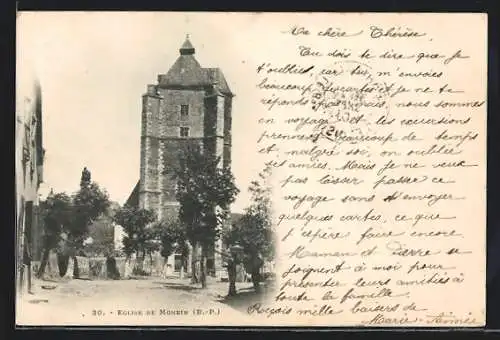 Ma chère Thérèse,
Tu dois te dire que je
t'oublies, car tu m'envoies
beaucoup de cartes et je ne te
réponds jamais, nous sommes
en voyage et les excursions
prennent beaucoup de temps
et malgré soi, on oublie
ses amies. Mais je ne veux
pas laisser passer ce
voyage sans t'envoyer
quelques cartes, ce que
j'espère faire encore.
Maman et Pierre se
joignent à moi pour
présenter leurs amitiés à
toute la famille.
Reçois mille baisers de
Marie-Aimée
30. - EGLISE DE MONEIN (B.-P.)